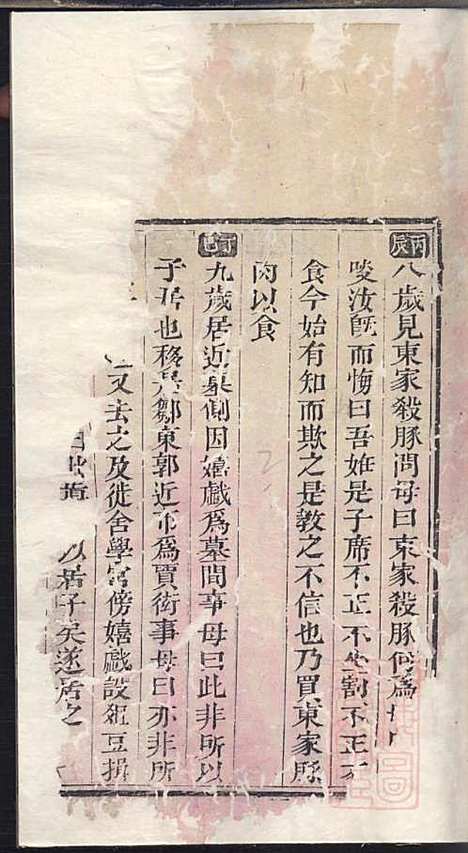 丙辰八歲見東家殺豚問母曰東家殺豚何爲母
啖汝旣而悔曰吾姙是子席不正不坐割不正不
食今始有知而欺之是教之不信也乃買東家豚
肉以食
丁巳九歲居近墓側因嬉戲爲墓間事母曰此非所以
子居也移居鄒東郭近市爲賈街事母曰亦非所
又去之及徙舍學宮傍嬉戲設俎豆揖
以居子矣遂居之